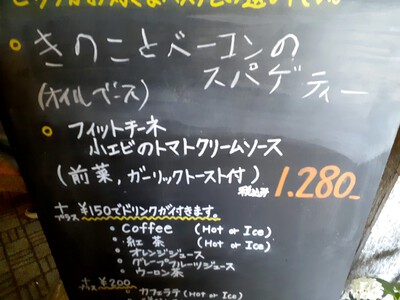 きのことベーコンの
スパゲティー
(オイルベース)
フィットチーネ
小エビのトマトクリームソース
(前菜,ガーリックトースト付) 税込み 1.280-
+プラス ¥150でドリンクが付きます。
・Coffee (Hot or Ice)
・紅茶 (Hot or Ice)
・オレンジジュース
・グレープフルーツジュース
・ウーロン茶
+プラス ¥200
・カフェラテ (Hot or Ice)